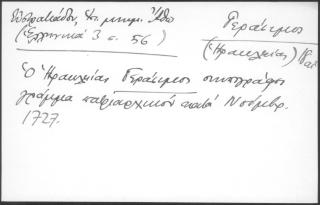 Εὐστρατιάδου, Ἱστ. μνημ. Ἄθω
(Ἑλληνικά 3 σ. 56)
Γεράσιμος
(Ἡρακλείας)
Ὁ Ἡρακλείας Γεράσιμος συνυπογράφει
γράμμα πατριαρχικόν κατά Νοέμβρ.
1727.